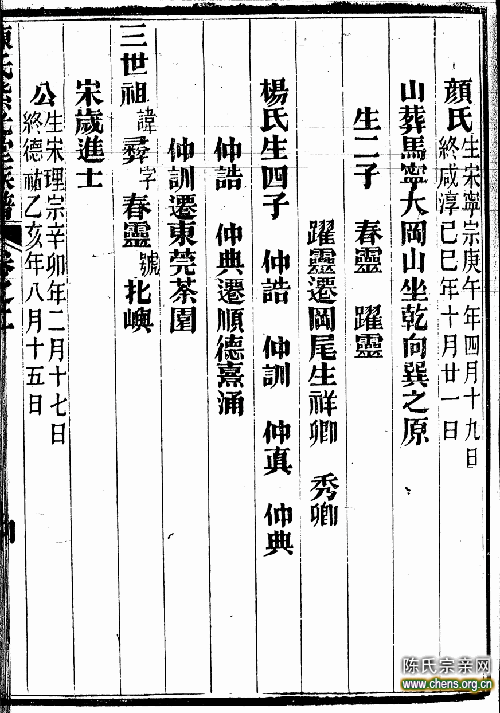 顏氏生宋寧宗庚午年四月十九日
終咸淳己巳年十月廿一日
山葬馬寧大岡山坐乾向巽之原
生二子 春靈 躍靈
躍靈遷岡尾生祥卿 秀卿
楊氏生四子 仲誥 仲訓 仲真 仲典
仲誥 仲典遷順德熹涌
仲訓遷東莞茶園
三世祖諱彞字春靈號北嶼
宋歲進士
公生宋理宗辛卯年二月十七日
終德祐乙亥年八月十五日
卷之二
陈氏宗亲网
www.chens.org.cn